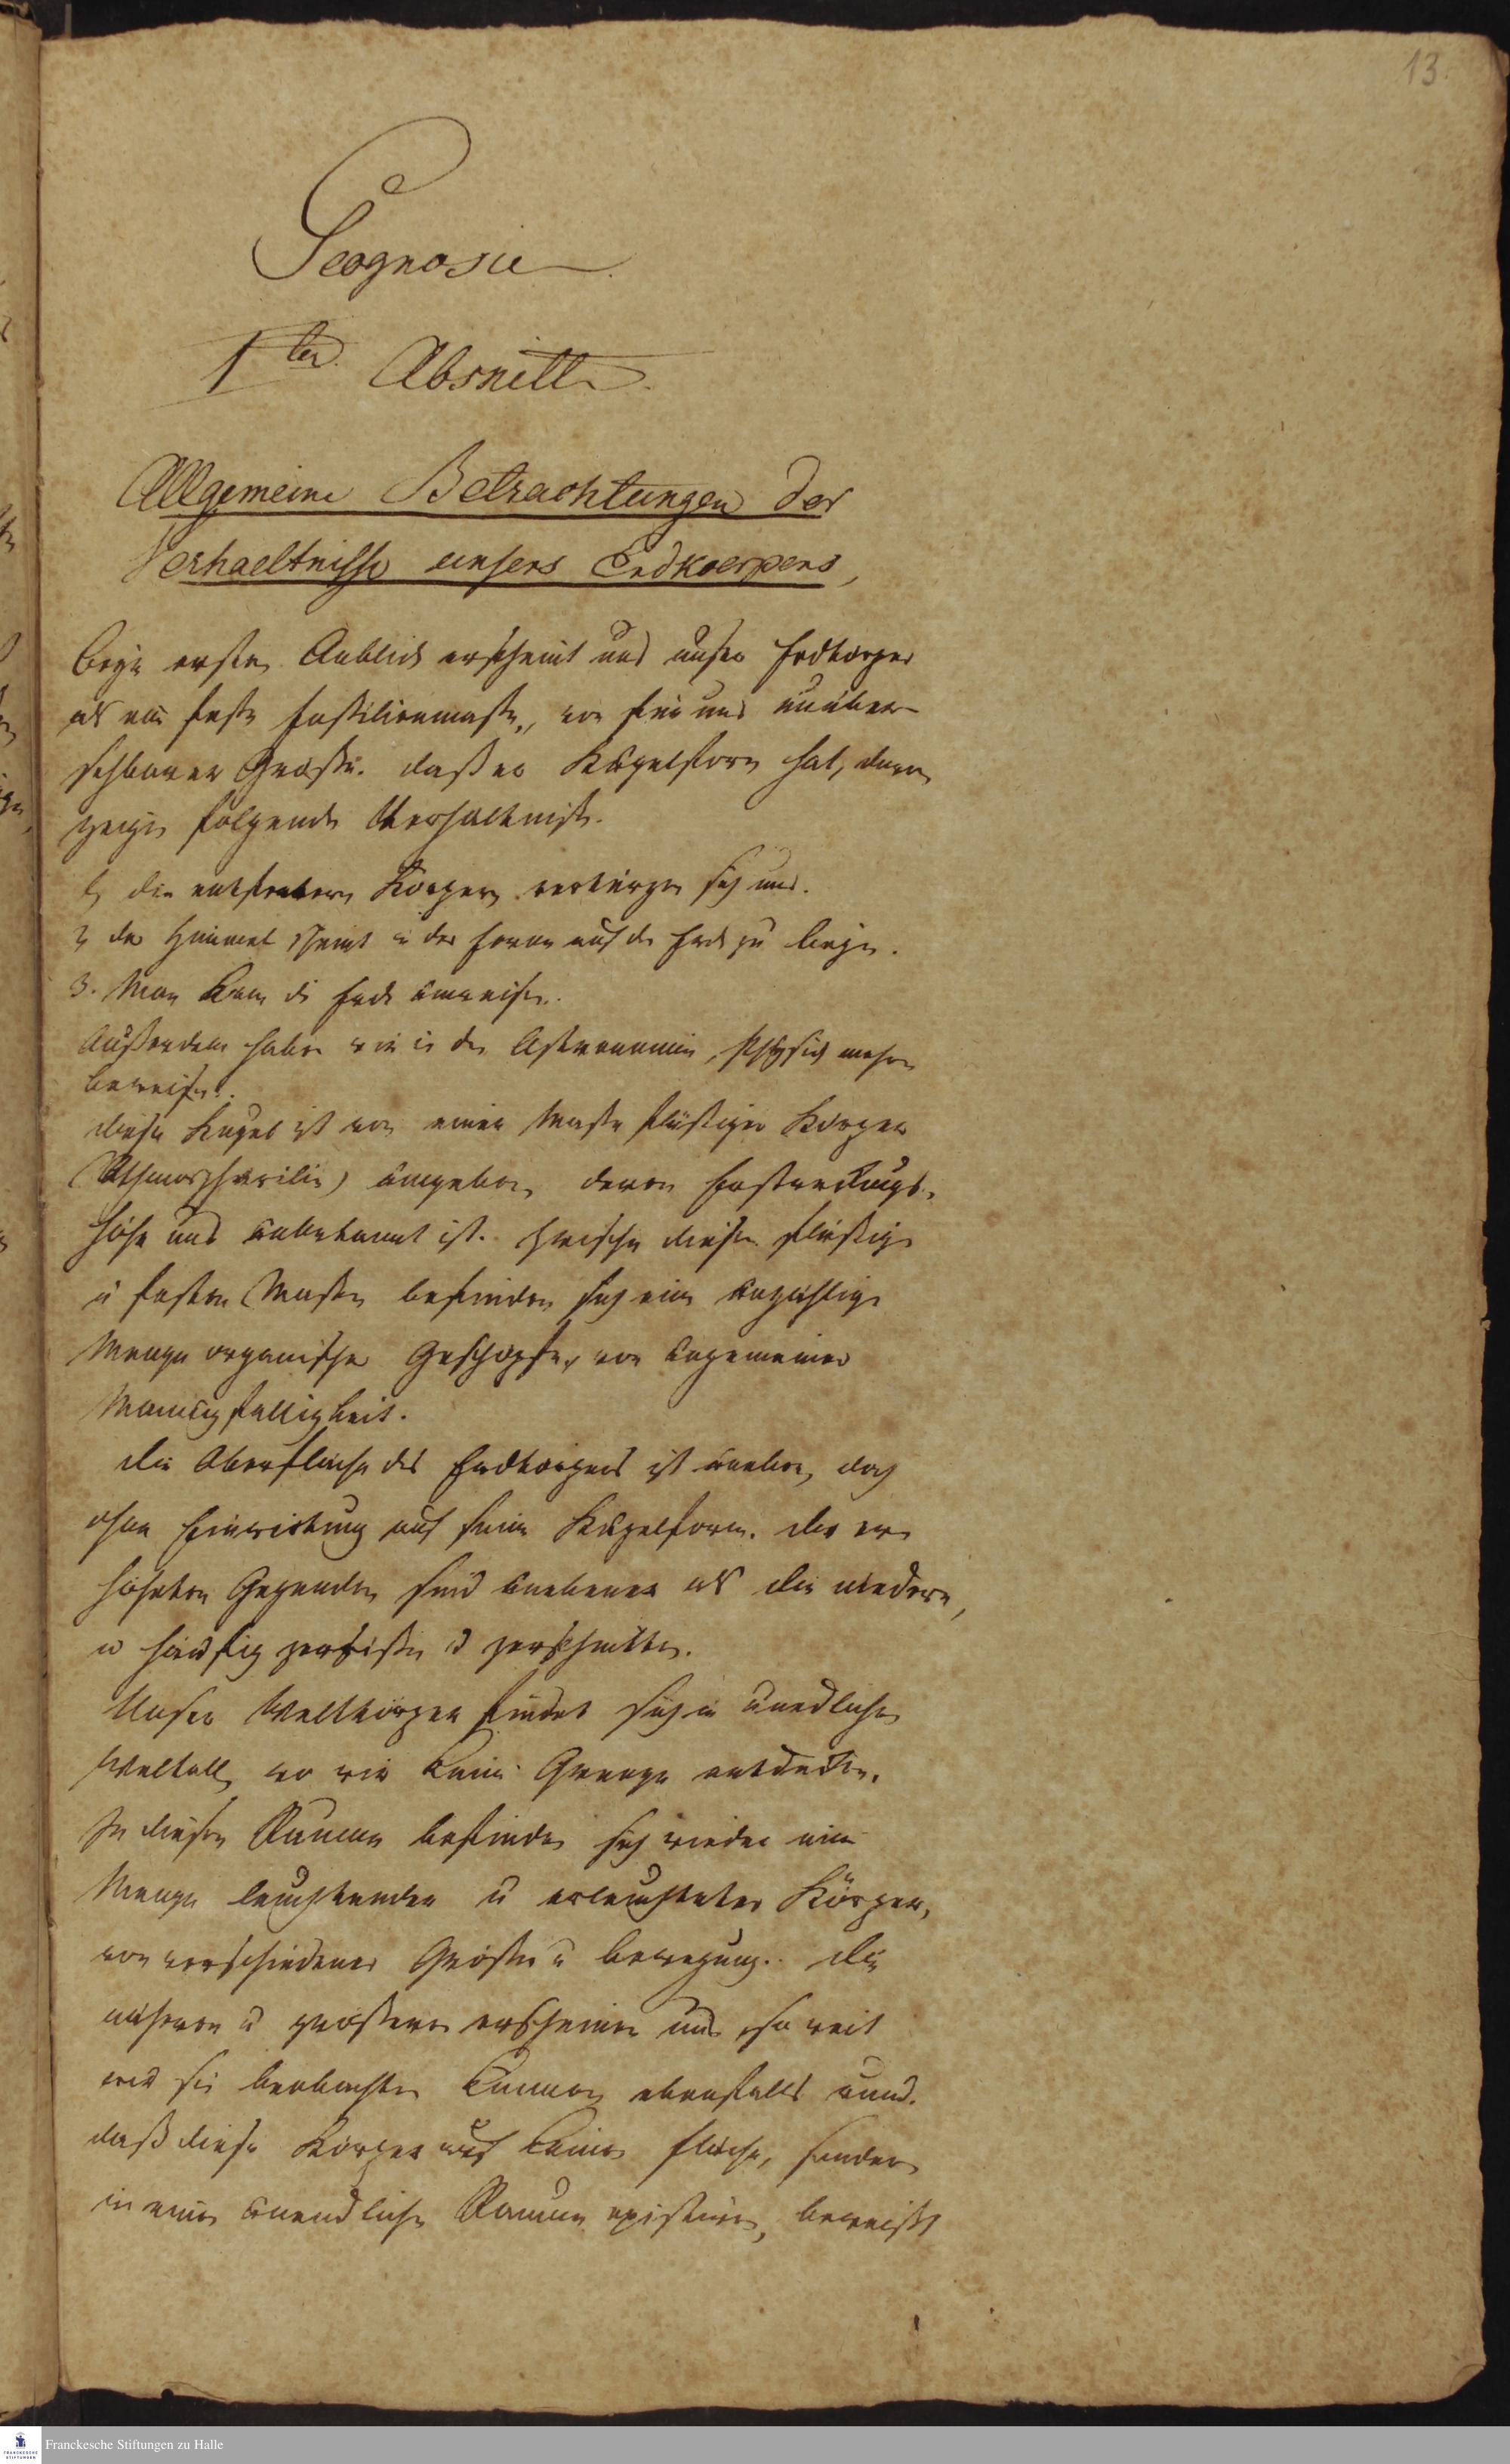 13.
Geognosie
1ter Absnitt.
Allgemeine Betrachtungen der
Verhaeltnisse unsers Erdkoerpers,
Beym ersten Anblick erscheint uns unser Erdkorper
als eine feste Fossilienmasse, von für uns unüber-
sehbarer Grösse. Daß er Kugelform hat, davon
zeigen folgende Verhaltnisse.
1, die entferntern Körper verkürzen sich uns.
2, der Himmel scheint in der Ferne auf der Erde zu liegen.
3. Man kann die Erde umreisen.
Außerdem haben wir in der Astronomie, Physick mehre
beweise.
diese Kugel ist von einer Masse flüssiger Körper
(Athmosphaerilien) umgeben, deren Erstreckungs-
höhe uns unbekannt ist. Zwischen diesen flüssigen
u festen Massen befinden sich eine unzählige
Menge organischer Geschöpfe, von ungemeiner
Mannigfaltigkeit.
Die Oberfläche des Erdkörpers ist uneben, doch
ohne Einwirkung auf seine Kugelform. Die er-
höheten Gegenden sind unebener als die niedern,
u häufig zerrissen u zerschnitten.
Unser Weltkörper findet sich in unendlichen
Weltall, wo wir keine Grenze entdecken.
In diesen Raume befinden sich wieder eine
Menge leuchtender u erleuchteter Körper,
von verschiedener Grösse u bewegung. Die
näheren u grösseren erscheinen uns, so weit
wir sie beobachten können ebenfalls rund.
daß diese Körper auf keiner Fläche, sondern
in einen unendlichen Raume existiren, beweißt
Franckesche Stiftungen zu Halle